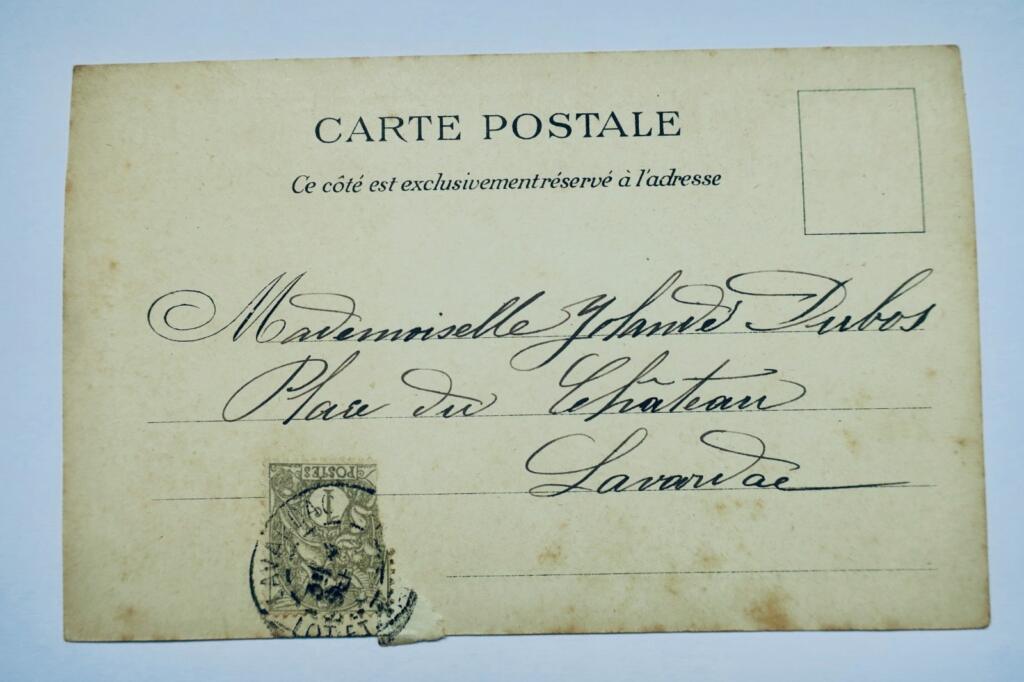 CARTE POSTALE
Ce côté est exclusivement réservé à l'adresse
Mademoiselle Yolande Dubos
Place du Château
Lavardac
POSTES
LOT-ET